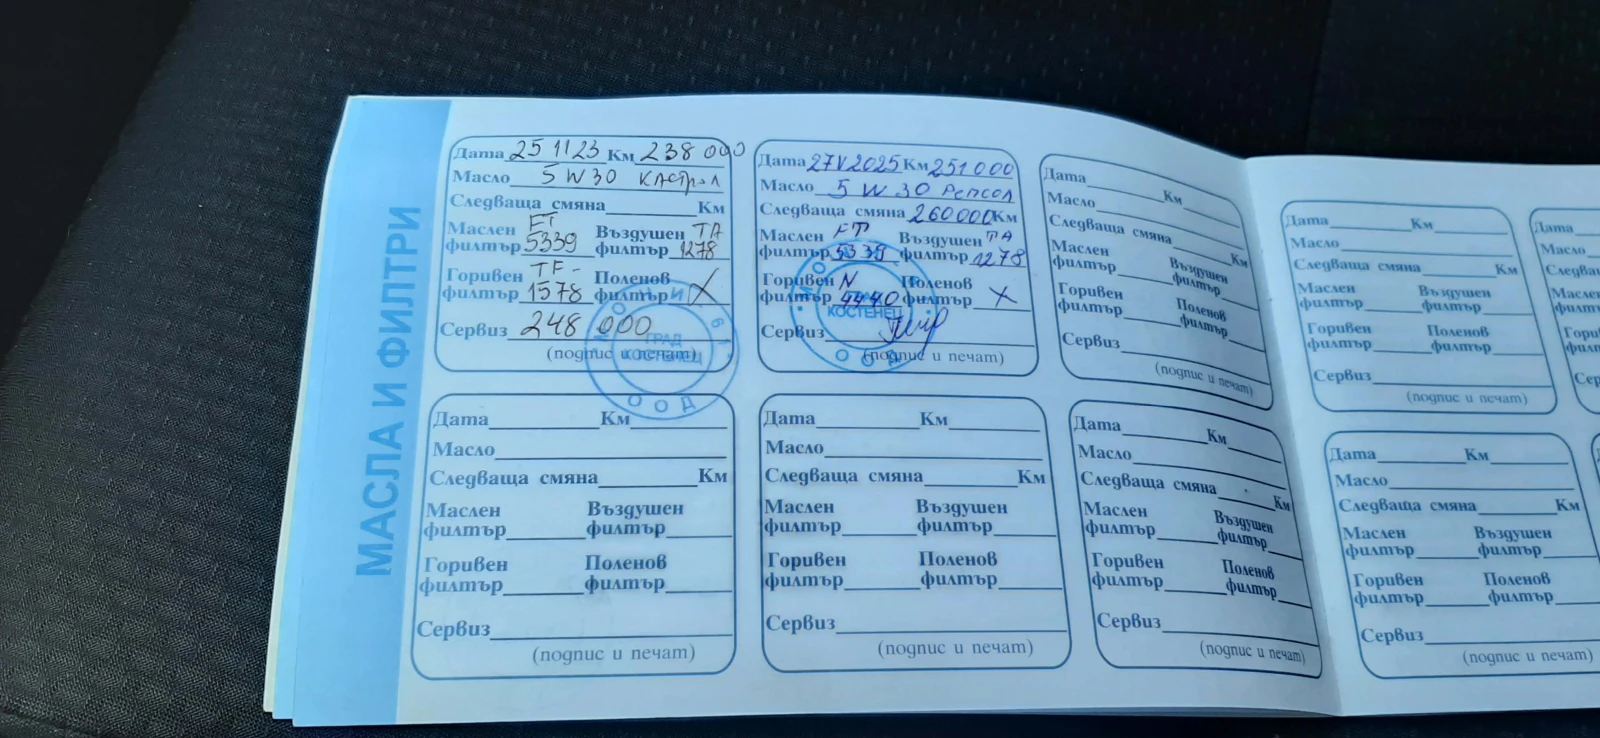 МАСЛА И ФИЛТРИ
Дата 25 11 23 Км 238 000
Масло 5 W 30 Кастрол
Следваща смяна Км
Маслен филтър FT 5339 Въздушен филтър TA 1278
Горивен филтър TF- 1578 Поленов филтър X
Сервиз 248 000
(подпис и печат)
ГРАД
КОСТЕНЕЦ
ООД
Дата 27 V 2025 Км 251 000
Масло 5 W 30 Репсол
Следваща смяна 260000 Км
Маслен филтър FT 5339 Въздушен филтър TA 1278
Горивен филтър N 4440 Поленов филтър X
Сервиз
(подпис и печат)
КОСТЕНЕЦ
ООД
Дата Км
Масло
Следваща смяна Км
Маслен филтър Въздушен филтър
Горивен филтър Поленов филтър
Сервиз
(подпис и печат)
Дата Км
Масло
Следваща смяна Км
Маслен филтър Въздушен филтър
Горивен филтър Поленов филтър
Сервиз
(подпис и печат)
Дата
Масло
Дата Км
Масло
Следваща смяна Км
Маслен филтър Въздушен филтър
Горивен филтър Поленов филтър
Сервиз
(подпис и печат)
Дата Км
Масло
Следваща смяна Км
Маслен филтър Въздушен филтър
Горивен филтър Поленов филтър
Сервиз
(подпис и печат)
Дата Км
Масло
Следваща смяна Км
Маслен филтър Въздушен филтър
Горивен филтър Поленов филтър
Сервиз
(подпис и печат)
Дата Км
Масло
Следваща смяна Км
Маслен филтър Въздушен филтър
Горивен филтър Поленов филтър
Сервиз
(подпис и печат)